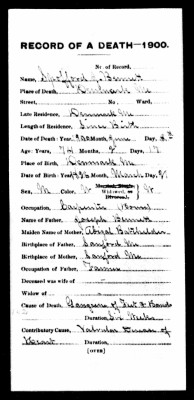 RECORD OF A DEATH—1900.
No. of Record,
Name, Spofford J. Bennett
Place of Death, Denmark Me
Street, No. Ward,
Late Residence, Denmark Me
Length of Residence, Since Birth
Date of Death: Year, 1900 Month, June Day,
Age: Years, 74 Months, 2 Days, 17
Place of Birth, Denmark Me
Date of Birth: Year, Month, March Day,
Sex, M Color, W Married, Single, Widowed, or Divorced, W
Occupation, Carpenter
Name of Father, Joseph Bennett
Maiden Name of Mother, Abigal Batchelder
Birthplace of Father, Sanford Me
Birthplace of Mother, Sanford Me
Occupation of Father, Farmer
Deceased was wife of
Widow of
Cause of Death, Gangrene of Feet & Hands
Duration, Six Weeks
Contributory Cause, Valvular Disease of
Heart Duration,
[OVER]